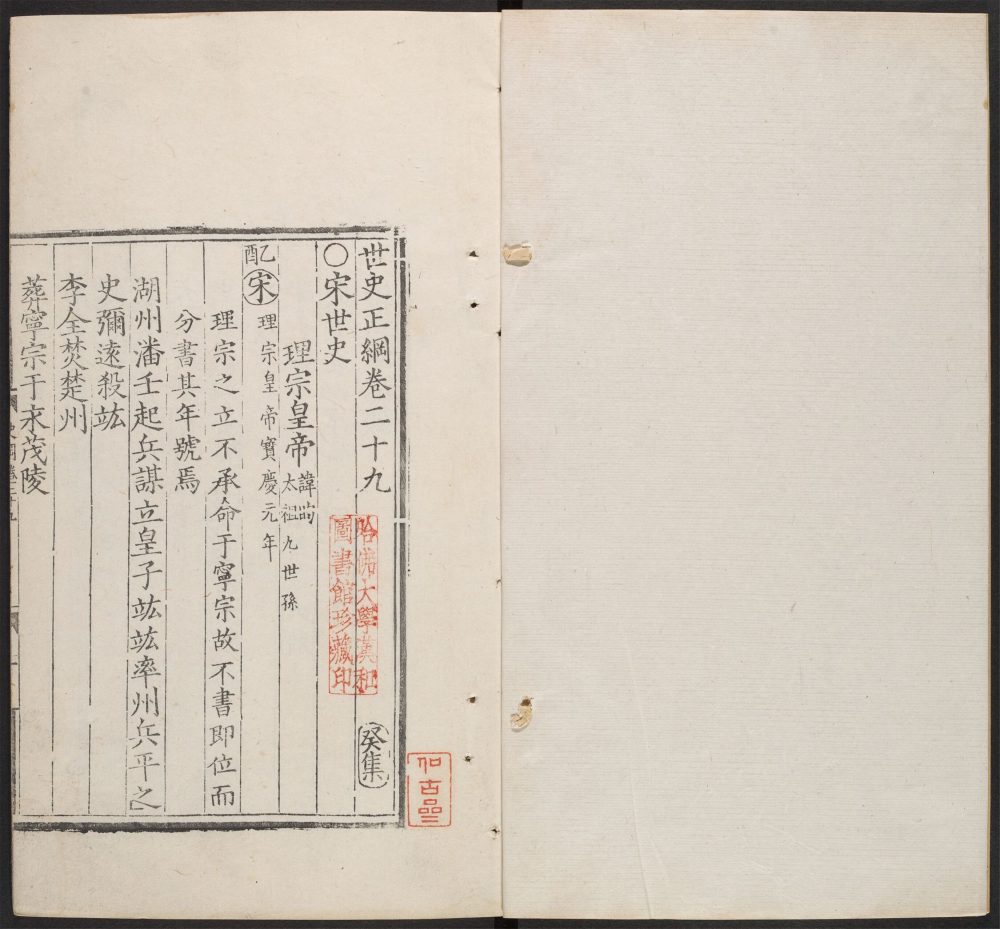 世史正綱卷二十九 癸集
○宋世史
理宗皇帝 諱昀 太祖九世孫
乙酉 宋 理宗皇帝寶慶元年
理宗之立不承命于寧宗故不書即位而
分書其年號焉
湖州潘壬起兵謀立皇子竑竑率州兵平之
史彌遠殺竑
李全焚楚州
葬寧宗于永茂陵
哈佛大學漢和
圖書館珍藏印